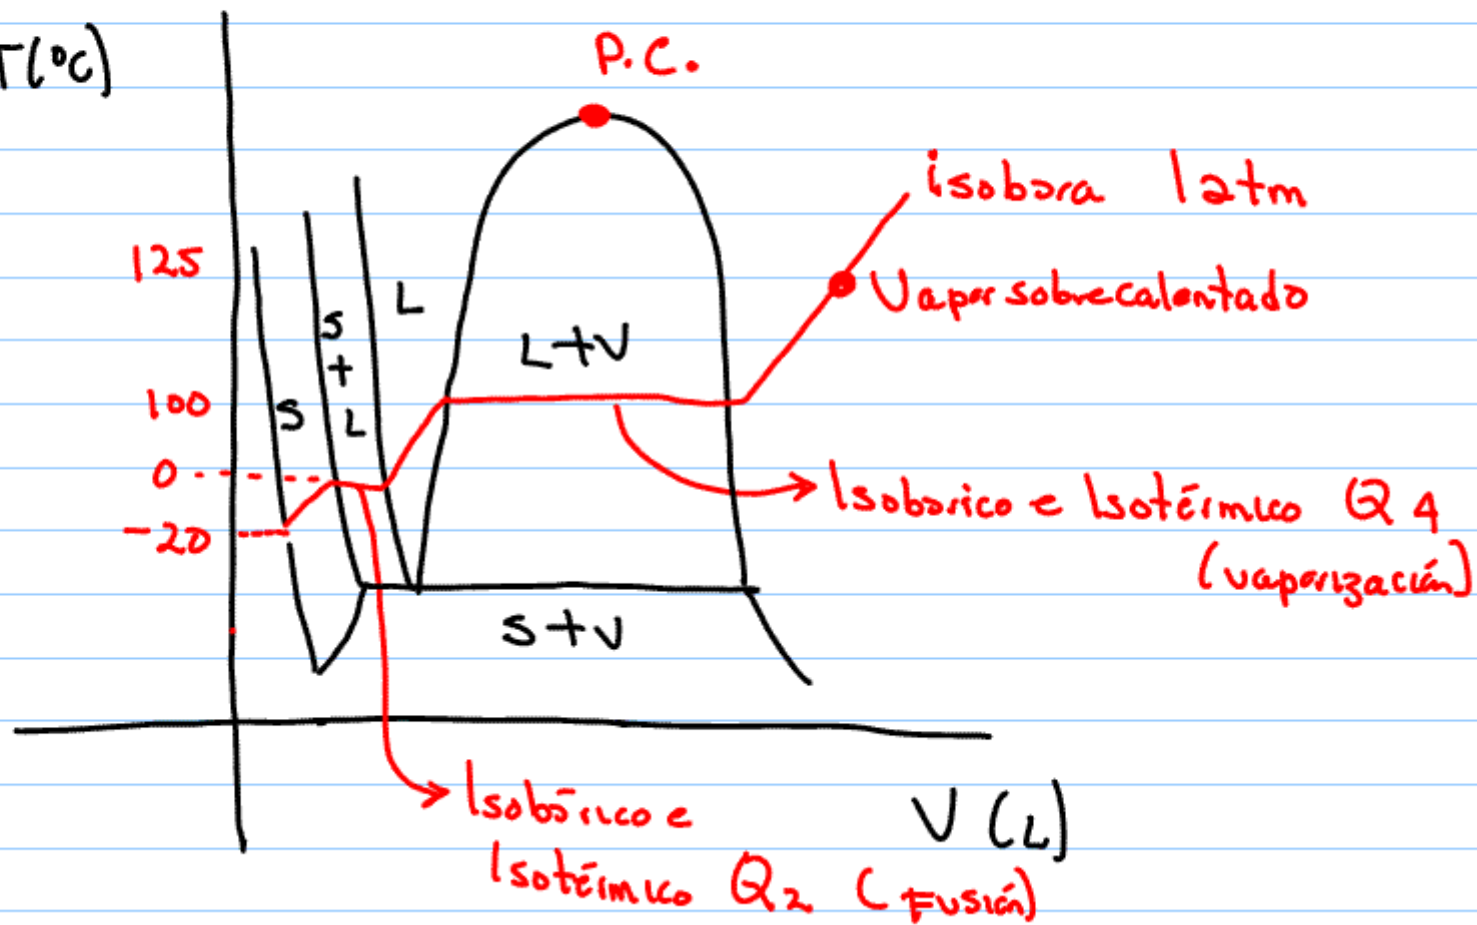 T(°C)
P.C.
isobara 1atm
125
Vapor sobrecalentado
L
S
+
L
L+V
100
S
0
Isobarico e Isotérmico Q4
(vaporización)
-20
S+V
Isobárico e
Isotérmico Q2 (Fusión)
V (L)